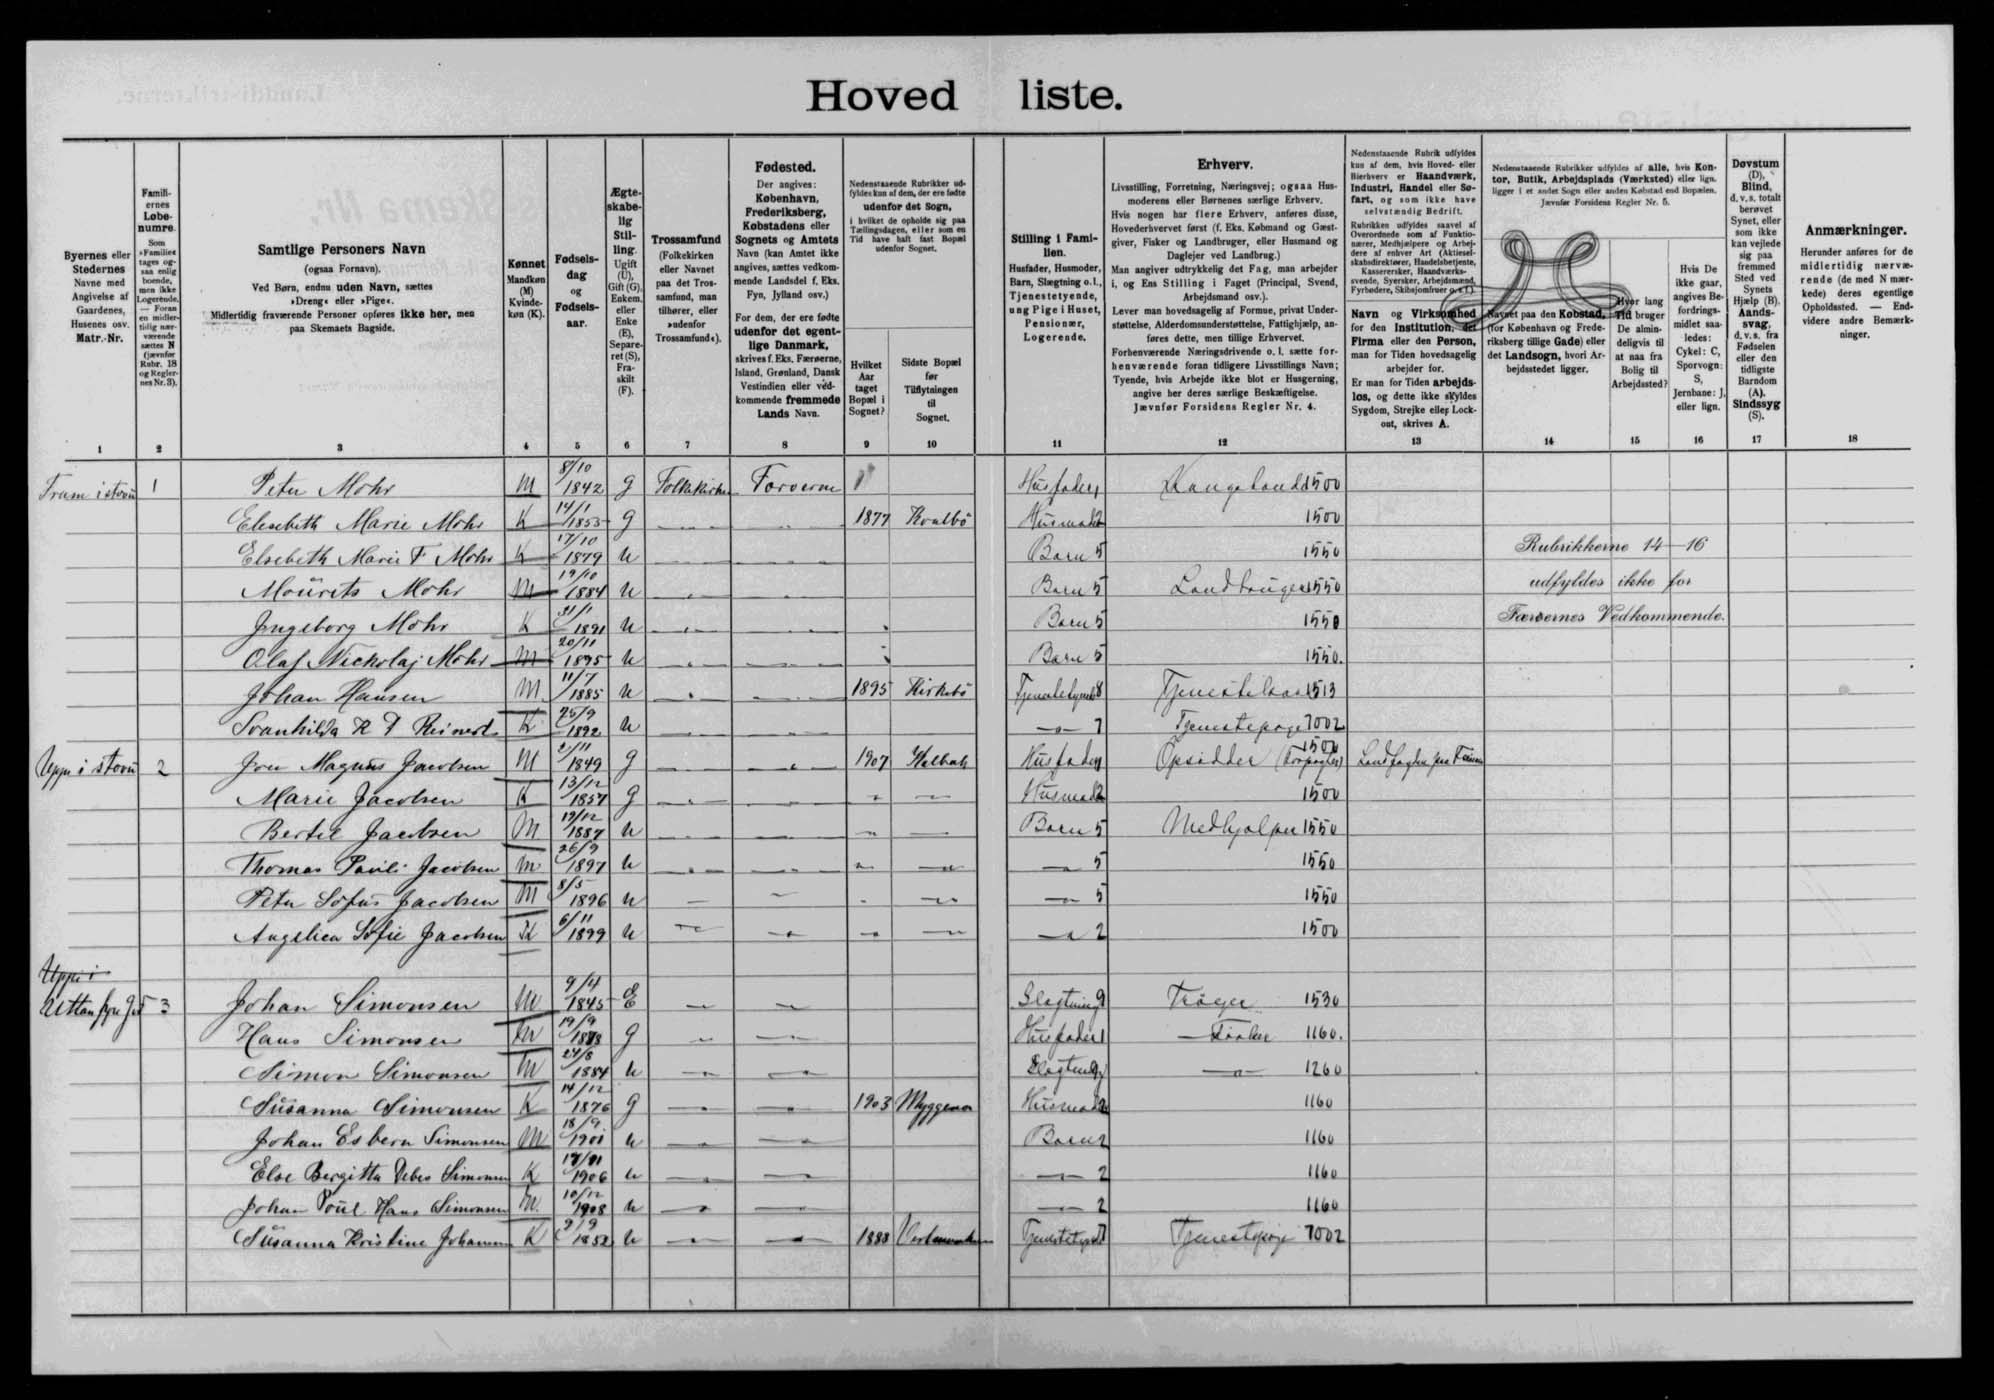 Hoved liste.
Byernes eller Stedernes Navne med Angivelse af Gaardenes, Husenes osv. Matr.-Nr.
Familiernes Løbenumre.
Som »Familie« tages ogsaa enlig boende, men ikke Logerende. — Foran en midlertidig nærværende sættes N (jævnfør Rubr. 18 og Regler-nes Nr. 3).
Samtlige Personers Navn
(ogsaa Fornavn).
Ved Børn, endnu uden Navn, sættes
»Dreng« eller »Pige«.
Midlertidig fraværende Personer opføres ikke her, men
paa Skemaets Bagside.
Kønnet
Mandkøn (M) Kvindekøn (K).
Fødselsdag og Fødselsaar.
Ægteskabelig Stilling.
Ugift (U), Gift (G), Enkem. eller Enke (E), Separeret (S), Fraskilt (F).
Trossamfund
(Folkekirken eller Navnet paa det Trossamfund, man tilhører, eller »udenfor Trossamfund«).
Fødested.
Der angives:
København,
Frederiksberg,
Købstadens eller
Sognets og Amtets
Navn (kan Amtet ikke
angives, sættes vedkommende Landsdel f. Eks.
Fyn, Jylland osv.)
For dem, der ere fødte
udenfor det egentlige Danmark,
skrives f. Eks. Færøerne,
Island, Grønland, Dansk
Vestindien eller vedkommende fremmede
Lands Navn.
Nedenstaaende Rubrikker udfyldes kun af dem, der ere fødte
udenfor det Sogn,
i hvilket de opholde sig paa
Tællingsdagen, eller som en
Tid have haft fast Bopæl
udenfor Sognet.
Hvilket Aar taget Bopæl i Sognet?
Sidste Bopæl før Tilflytningen til Sognet.
Stilling i Familien.
Husfader, Husmoder,
Barn, Slægtning o.l.,
Tjenestetyende,
ung Pige i Huset,
Pensionær,
Logerende.
Erhverv.
Livsstilling, Forretning, Næringsvej; ogsaa Husmoderens eller Børnenes særlige Erhverv.
Hvis nogen har flere Erhverv, anføres disse,
Hovederhvervet først (f. Eks. Købmand og Gæstgiver, Fisker og Landbruger, eller Husmand og
Daglejer ved Landbrug.)
Man angiver udtrykkelig det Fag, man arbejder
i, og Ens Stilling i Faget (Principal, Svend,
Arbejdsmand osv.).
Lever man hovedsagelig af Formue, privat Understøttelse, Alderdomsunderstøttelse, Fattighjælp, anføres dette, men tillige Erhvervet.
Forhenværende Næringsdrivende o. l. sætte forhenværende foran tidligere Livsstillings Navn;
Tyende, hvis Arbejde ikke blot er Husgerning,
angive her deres særlige Beskæftigelse.
Jævnfør Forsidens Regler Nr. 4.
Nedenstaaende Rubrik udfyldes
kun af dem, hvis Hoved- eller
Bierhverv er Haandværk,
Industri, Handel eller Søfart, og som ikke have
selvstændig Bedrift.
Rubrikken udfyldes saavel af
Overordnede som af Funktionærer, Medhjælpere og Arbejdere af enhver Art (Aktieselskabsdirektører, Handelsbetjente,
Kasserersker, Haandværkssvende, Syersker, Arbejdsmænd,
Fyrbødere, Skibsjomfruer o.s.f.)
Navn og Virksomhed
for den Institution, det
Firma eller den Person,
man for Tiden hovedsagelig
arbejder for.
Er man for Tiden arbejdsløs, og dette ikke skyldes
Sygdom, Strejke eller Lockout, skrives A.
Nedenstaaende Rubrikker udfyldes af alle, hvis Kontor, Butik, Arbejdsplads (Værksted) eller lign.
ligger i et andet Sogn eller anden Købstad end Bopælen.
Jævnfør Forsidens Regler Nr. 5.
Navnet paa den Købstad,
(for København og Frederiksberg tillige Gade) eller
det Landsogn, hvori Arbejdsstedet ligger.
Hvor lang Tid bruger De almindeligvis til at naa fra Bolig til Arbejdssted?
Hvis De ikke gaar, angives Befordringsmidlet saaledes: Cykel: C, Sporvogn: S, Jernbane: J, eller lign.
Døvstum (D), Blind, d. v. s. totalt berøvet Synet, eller som ikke kan vejlede sig paa fremmed Sted ved Synets Hjælp (B). Aandssvag, d. v. s. fra Fødselen eller den tidligste Barndom (A). Sindssyg (S).
Anmærkninger.
Herunder anføres for de
midlertidig nærværende (de med N mærkede) deres egentlige
Opholdssted. — Endvidere andre Bemærkninger.
1 2 3 4 5 6 7 8 9 10 11 12 13 14 15 16 17 18
1 Peter Mohr M 8/10 1842 G Folkekirken Færøerne Husfader 1 1500
Elisabeth Marie Mohr K 14/1 1853 G 1877 Husmoder 2 1500
Elsebeth Marie F Mohr K 17/10 1879 U Barn 5 1550 Rubrikkerne 14—16
Mourits Mohr M 19/10 1884 U Barn 5 Landbruger 1550 udfyldes ikke for
Ingeborg Mohr K 31/1 1891 U Barn 5 1550 Færøernes Vedkommende.
Olaf Nickolaj Mohr M 20/11 1895 U Barn 5 1550.
Johan Hansen M 11/7 1885 U 1895 Kirkebö Tjenestetyende 8 1513
Svanhilda K K 25/9 1892 U — 7 Tjenestepige 7002
Uppi i stovu 2 Joen Magnus Jacobsen M 2/11 1849 G 1907 Husfader 1 1500
Marie Jacobsen K 13/12 1857 G Husmoder 2 1500
Jacobsen M 19/12 1887 U Barn 5 Medhjælper 1550
Thomas Pauli Jacobsen M 26/9 1897 U — 5 1550
Peter Sofus Jacobsen M 8/5 1896 U — 5 1550
Angelica Sofie Jacobsen K 6/11 1899 U — 2 1500
Uppi i
3 Johan Simonsen M 9/4 1845 E Slægtning 9 1530
Hans Simonsen M 19/9 G Husfader 1 Fisker 1160.
Simon Simonsen M 24/8 1884 U Slægtning 9 1260
Susanna Simonsen K 14/12 1876 G 1903 Myggenæs Husmoder 2 1160
Johan Esbern Simonsen M 18/9 1901 U Barn 2 1160
Else Bergitta Debes Simonsen K 1906 U — 2 1160
Johan Poul Hans Simonsen M. 10/12 1908 U — 2 1160
Susanna Kristine Johannesen K 9/9 1852 U 1888 Vestmanhavn Tjenestetyende 7 Tjenestepige 7002